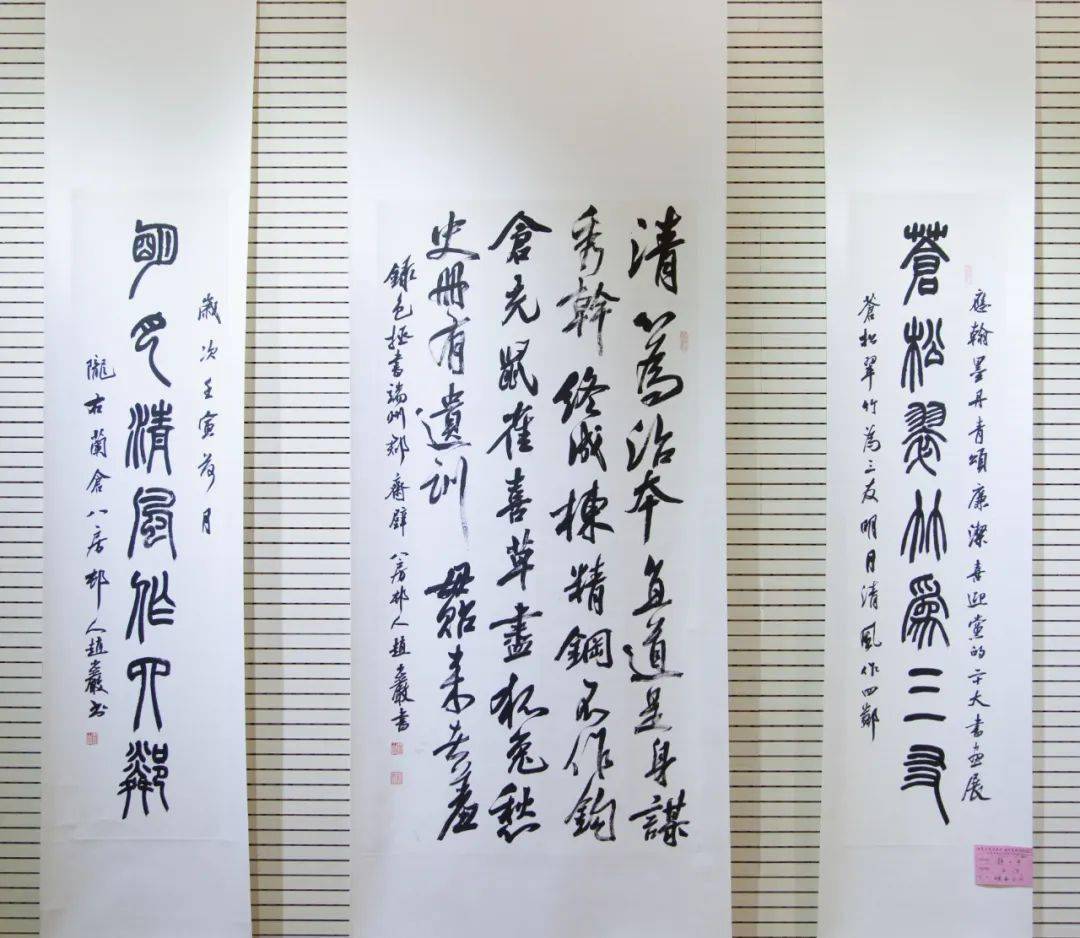 應翰墨丹青頌廉潔喜迎黨的二十大書畫展
蒼松翠竹為三友
蒼松翠竹為三友明月清風作四鄰
清心為治本直道是身謀
秀幹終成棟精鋼不作鉤
倉充鼠雀喜草盡狐兔愁
史冊有遺訓毋貽來者羞
錄包拯書端州郡齋壁八房邨人趙巖書
歲次壬寅荷月
明月清風作四鄰
隴右蘭倉八房邨人趙巖書